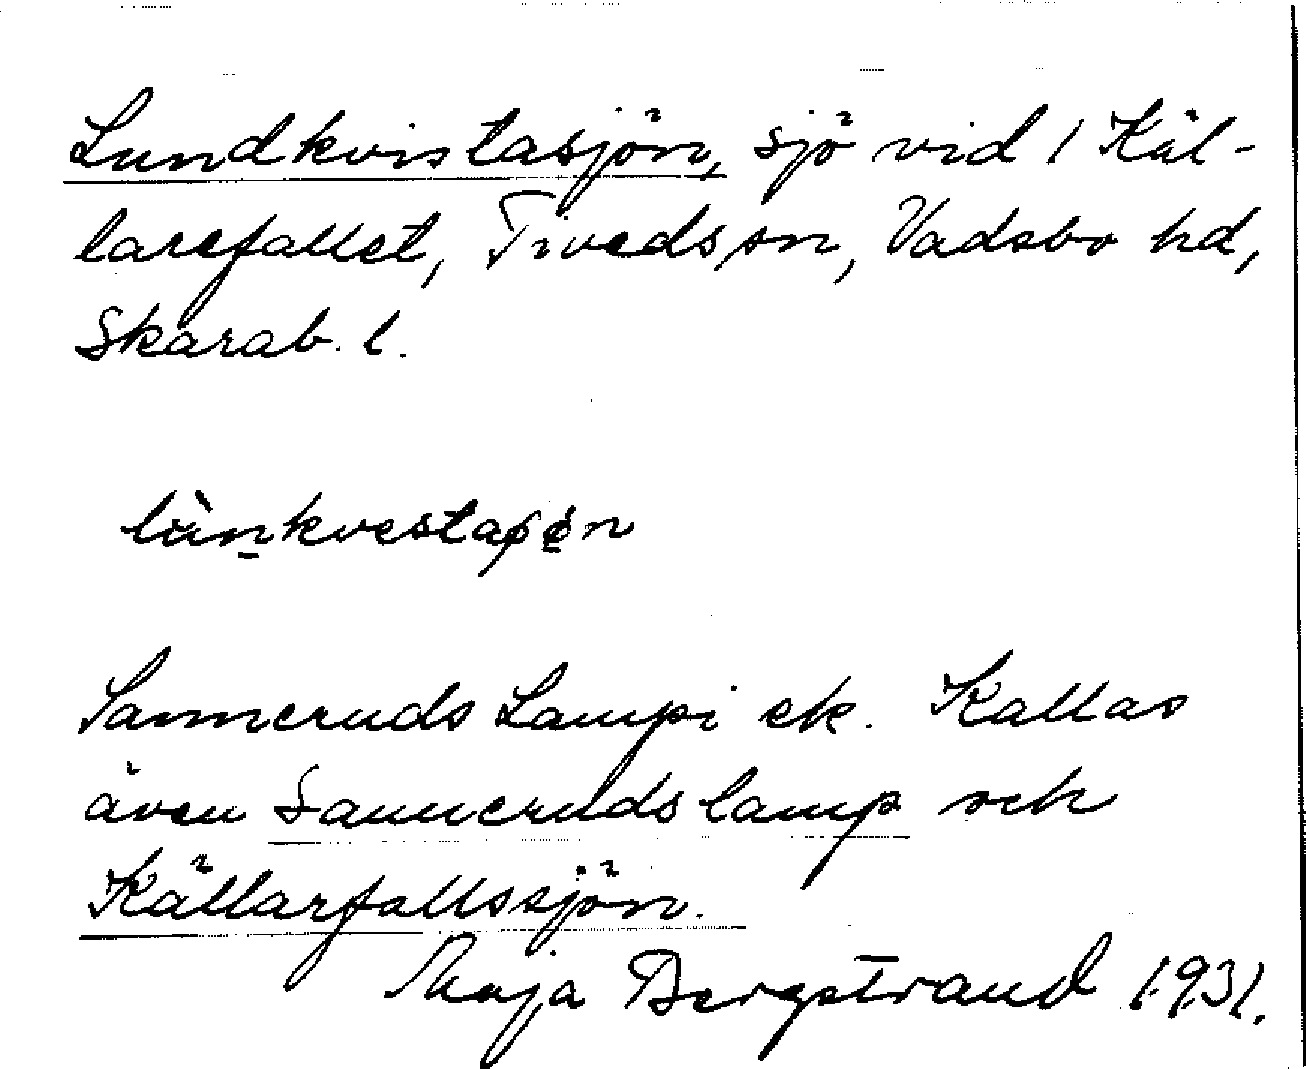 Lundkvistasjön, sjö vid 1 Käl-
larefallet, Tiveds sn, Vadsbo hd,
Skarab. l.
Sanneruds Lamp i ek. Kallas
även Sannerudslamp och
Källarfallssjön.
Maja Bergstrand 1931.